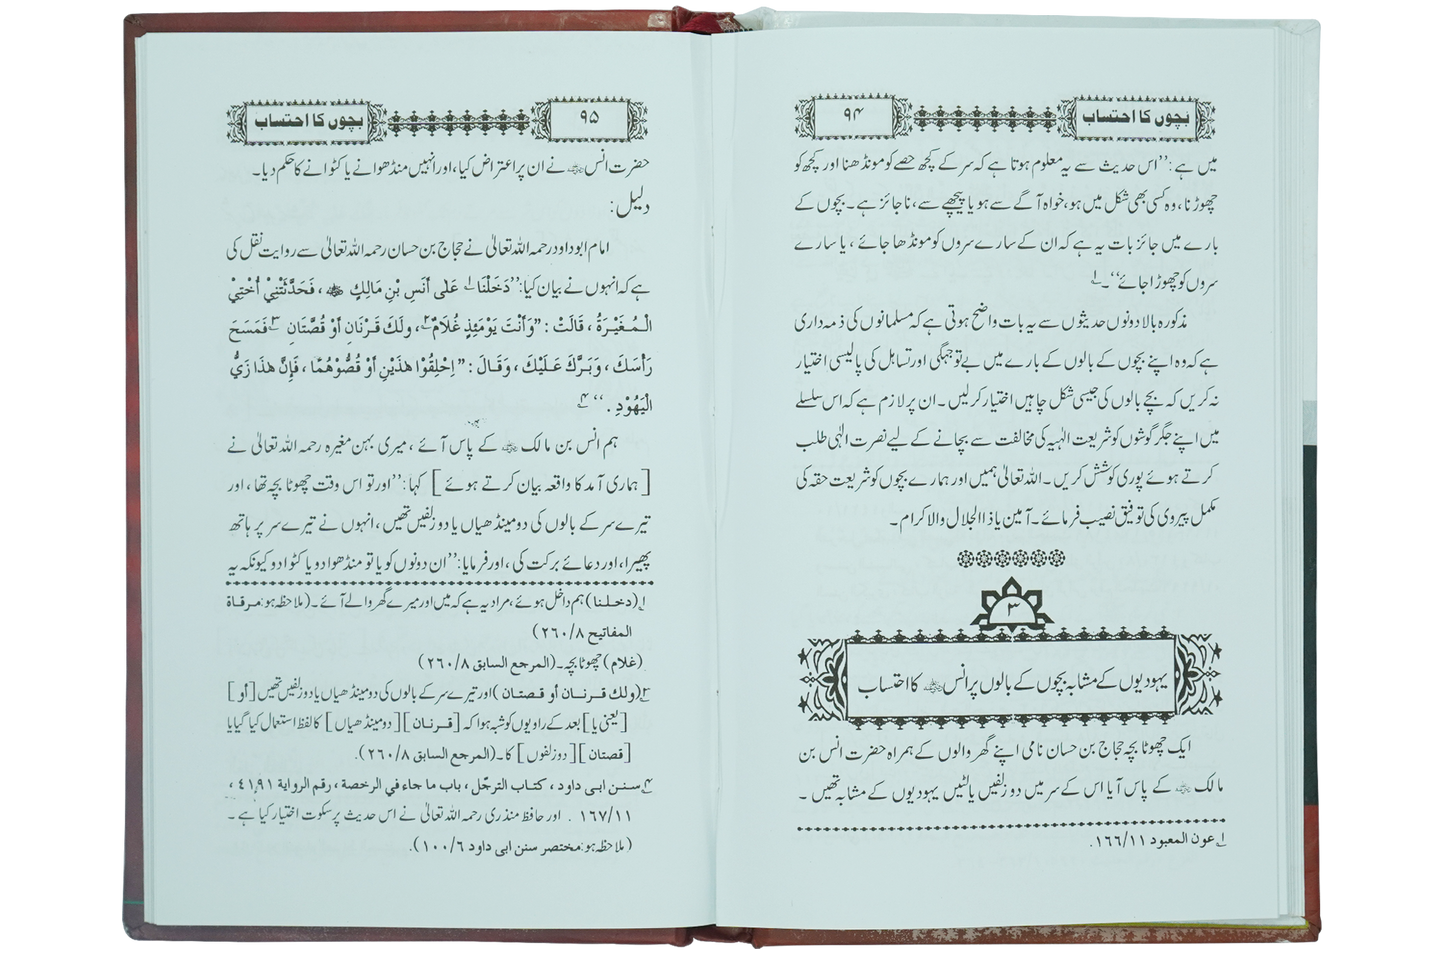 بچوں کا احتساب
۹۴
میں ہے: ’’اس حدیث سے یہ معلوم ہوتا ہے کہ سر کے کچھ حصے کو مونڈھنا اور کچھ کو
چھوڑنا، وہ کسی بھی شکل میں ہو، خواہ آگے سے ہو یا پیچھے سے، ناجائز ہے۔ بچوں کے
بارے میں جائز بات یہ ہے کہ ان کے سارے سروں کو مونڈھا جائے، یا سارے
سروں کو چھوڑا جائے‘‘۔ ۱
مذکورہ بالا دونوں حدیثوں سے یہ بات واضح ہوتی ہے کہ مسلمانوں کی ذمہ داری
ہے کہ وہ اپنے بچوں کے بالوں کے بارے میں بے توجہگی اور تساہل کی پالیسی اختیار
نہ کریں کہ بچے بالوں کی جیسی شکل چاہیں اختیار کرلیں۔ ان پر لازم ہے کہ اس سلسلے
میں اپنے جگر گوشوں کو شریعت الٰہیہ کی مخالفت سے بچانے کے لیے نصرت الٰہی طلب
کرتے ہوئے پوری کوشش کریں۔ اللہ تعالیٰ ہمیں اور ہمارے بچوں کو شریعت حقہ کی
مکمل پیروی کی توفیق نصیب فرمائے۔ آمین یا ذا الجلال والاکرام۔
۳
یہودیوں کے مشابہ بچوں کے بالوں پر انس ؓ کا احتساب
ایک چھوٹا بچہ حجاج بن حسان نامی اپنے گھر والوں کے ہمراہ حضرت انس بن
مالک ؓ کے پاس آیا اس کے سر میں دو زلفیں یا لٹیں یہودیوں کے مشابہ تھیں۔
۱ عون المعبود ۱۱/۱۶۶.
بچوں کا احتساب
۹۵
حضرت انس ؓ نے ان پر اعتراض کیا، اور انہیں منڈھوانے یا کٹوانے کا حکم دیا۔
دلیل:
امام ابوداود رحمہ اللہ تعالیٰ نے حجاج بن حسان رحمہ اللہ تعالیٰ سے روایت نقل کی
ہے کہ انہوں نے بیان کیا: ’’دَخَلْنَا ۱ عَلٰی أَنَسِ بْنِ مَالِكٍ ؓ ، فَحَدَّثَتْنِيْ أُخْتِيْ
الْمُغَيْرَةُ ، قَالَتْ : ’’وَأَنْتَ يَوْمَئِذٍ غُلَامٌ ۲، ولَكَ قَرْنَانِ أَوْ قُصَّتَانِ ۳ فَمَسَحَ
رَأْسَكَ ، وَبَرَّكَ عَلَيْكَ ، وَقَالَ : ’’اِحْلِقُوْا هٰذَيْنِ أَوْ قُصُّوْهُمَا ، فَإِنَّ هٰذَا زَيُّ
الْيَهُوْدِ . ‘‘ ۴
ہم انس بن مالک ؓ کے پاس آئے، میری بہن مغیرہ رحمہ اللہ تعالیٰ نے
[ہماری آمد کا واقعہ بیان کرتے ہوئے] کہا: ’’اور تو اس وقت چھوٹا بچہ تھا، اور
تیرے سر کے بالوں کی دو مینڈھیاں یا دو زلفیں تھیں، انہوں نے تیرے سر پر ہاتھ
پھیرا، اور دعائے برکت کی، اور فرمایا: ’’ان دونوں کو یا تو منڈھوا دو یا کٹوا دو کیونکہ یہ
۱ (دخلنا) ہم داخل ہوئے، مراد یہ ہے کہ میں اور میرے گھر والے آئے۔ (ملاحظہ ہو: مرقاة
المفاتيح ۸/۲۶۰)
(غلام) چھوٹا بچہ۔ (المرجع السابق ۸/۲۶۰)
۳ (ولك قرنان أو قصتان) اور تیرے سر کے بالوں کی دو مینڈھیاں یا دو زلفیں تھیں [أو]
[یعنی یا] بعد کے راویوں کو شبہ ہوا کہ [قرنان] [دو مینڈھیاں] کا لفظ استعمال کیا گیا یا
[قصتان] [دو زلفوں] کا۔ (المرجع السابق ۸/۲۶۰).
۴ سنن ابی داود ، کتاب الترجّل ، باب ما جاء في الرخصة ، رقم الرواية ۴۱۹۱ ،
۱۱/۱۶۷ . اور حافظ منذری رحمہ اللہ تعالیٰ نے اس حدیث پر سکوت اختیار کیا ہے۔
(ملاحظہ ہو: مختصر سنن ابی داود ۶/۱۰۰).